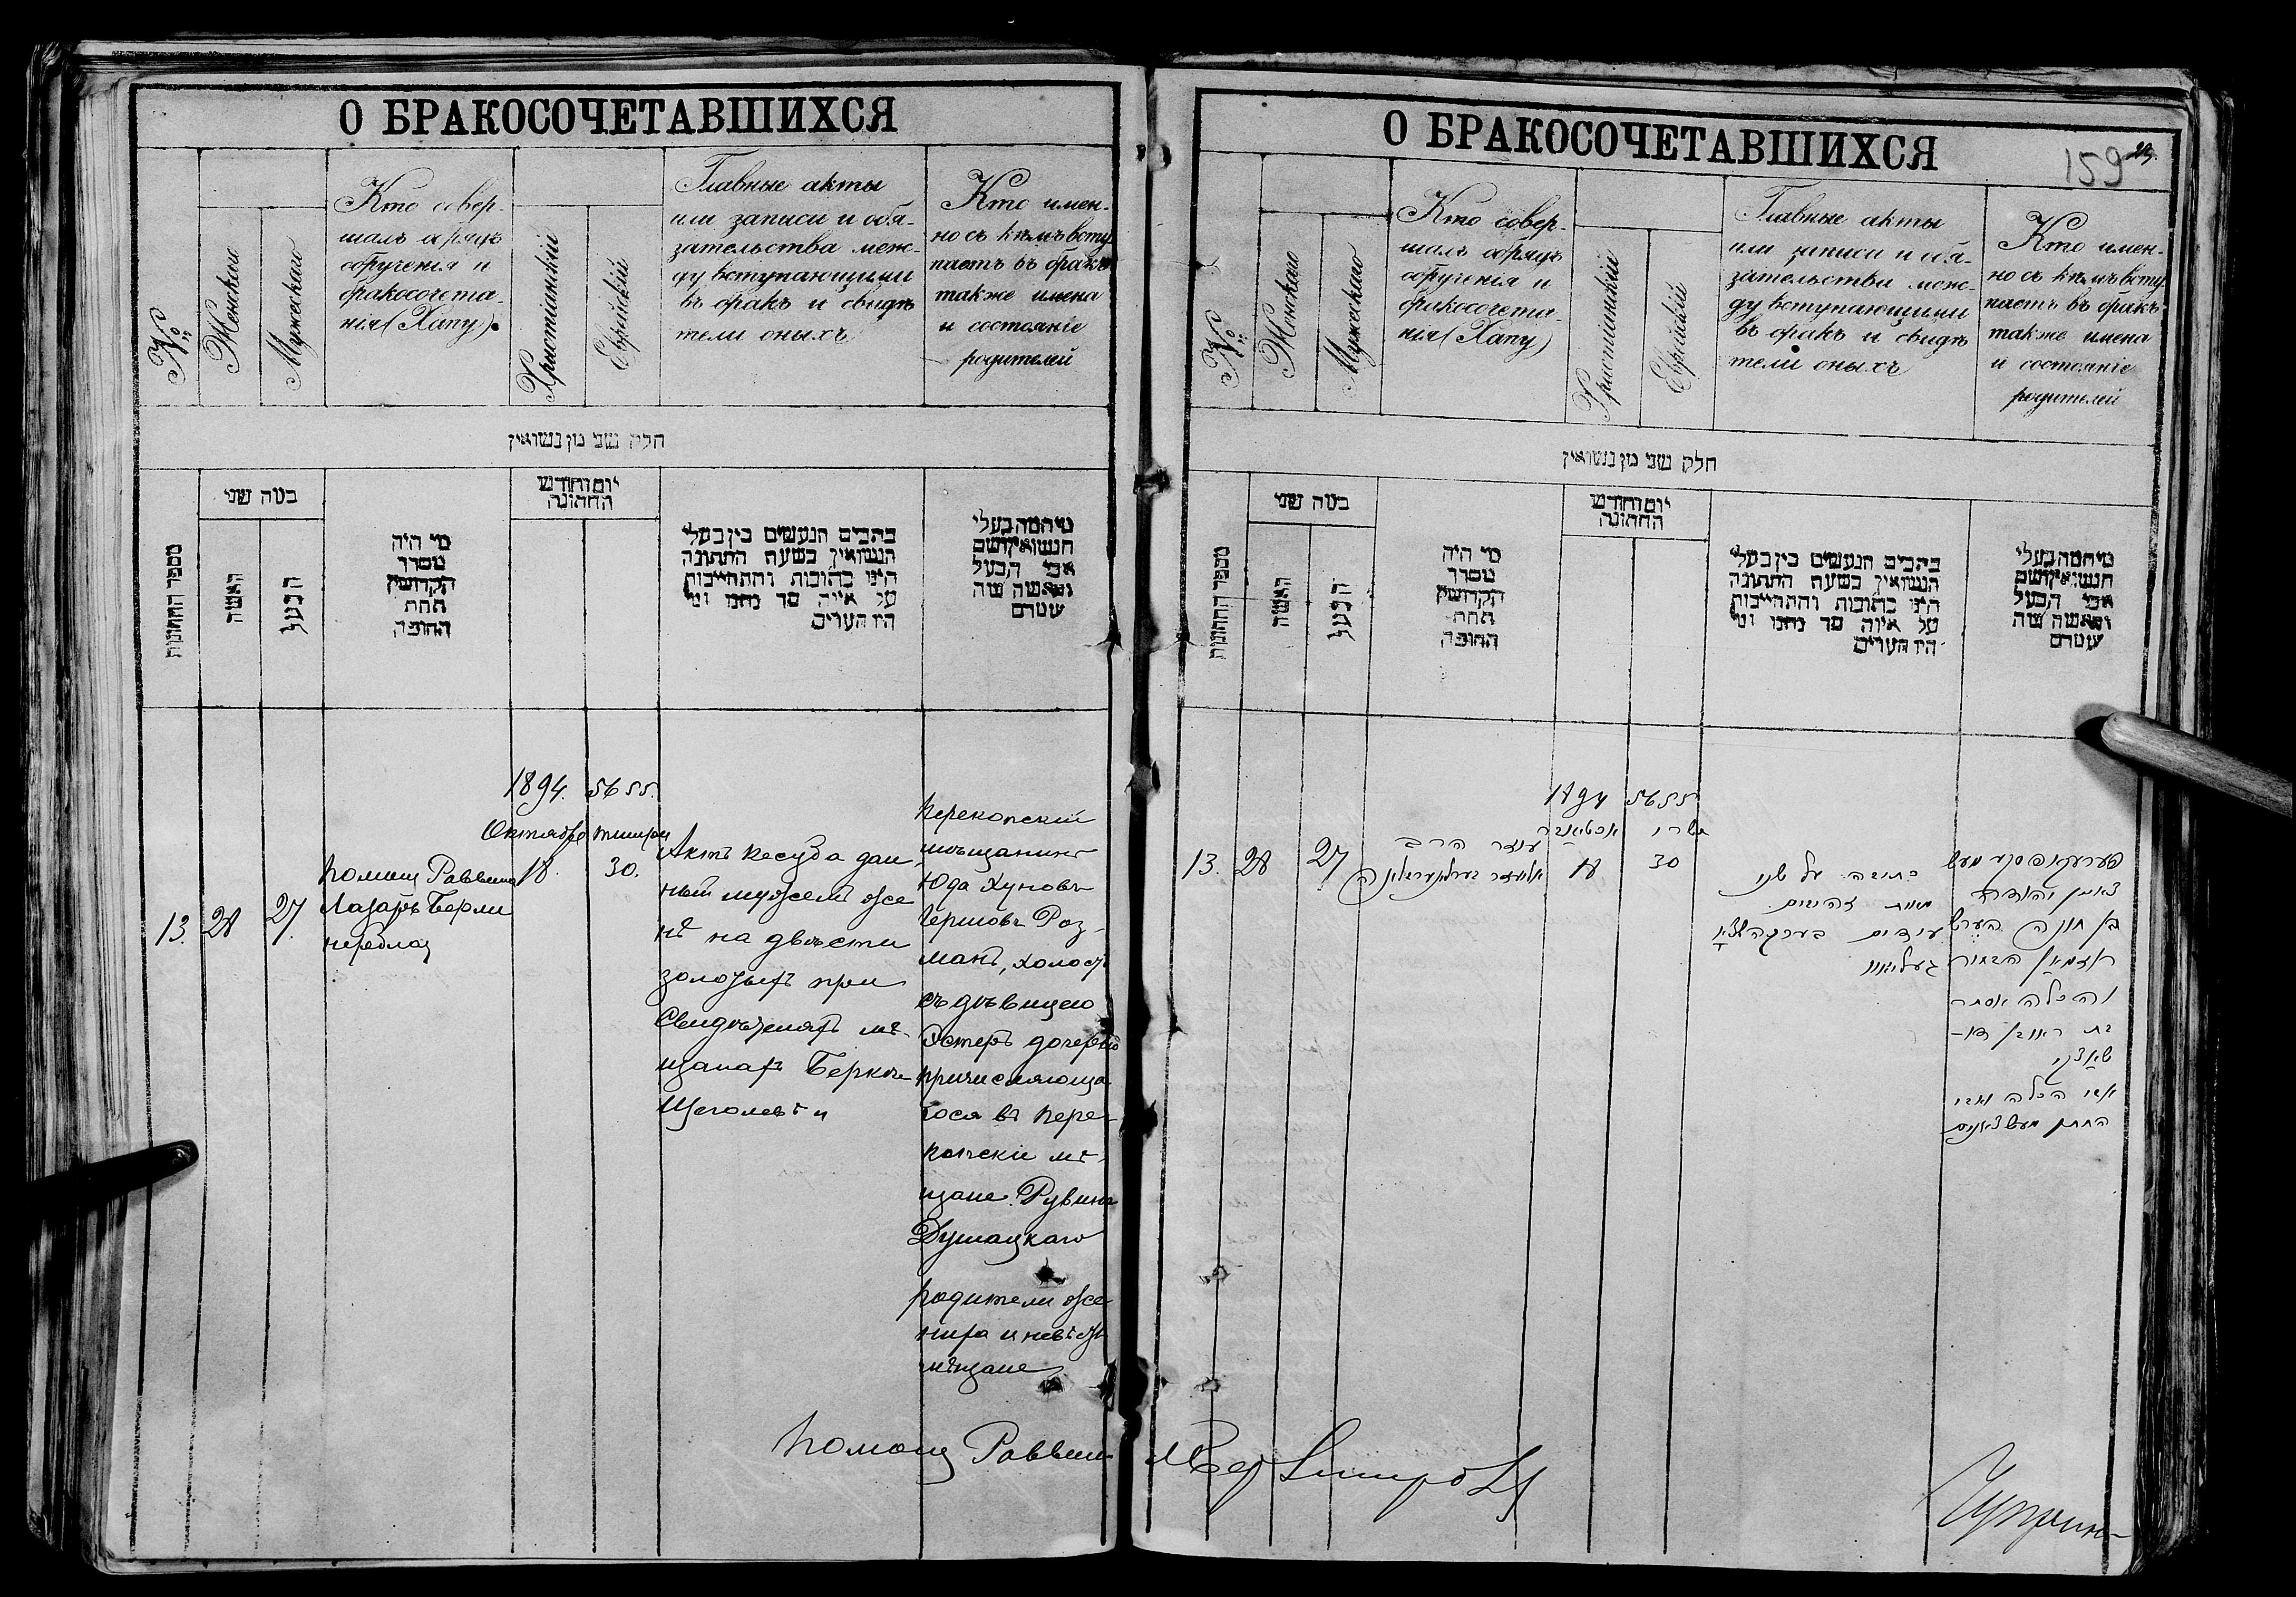 О БРАКОСОЧЕТАВШИХСЯ
№
Женскаго
Мужескаго
Кто совер-
шалъ обрядъ
обрученія и
бракосочета-
нія (Хапу).
Христіанскій
Еврейскій
Главные акты
или записи и обя-
зательства меж-
ду вступающими
въ бракъ и свидѣ
тели оныхъ
Кто имен-
но съ кѣмъ всту
паетъ въ бракъ
также имена
и состояніе
родителей
חלק שני מן נשואין
מספר החתונות
כמה שני
האשה
הבעל
מי היה
מסדר
הקדושין
תחת
החופה
יום וחודש
החתונה
כתבים הנעשים בין בעלי
הנשואין בשעת החתונה
היינו כתובות והתחייבות
על איזה סך נתנו ומי
היו העדים
מי המה בעלי
הנשואין ושם
אבי הבעל
והאשה
13.
28
27.
Помощ Раввина
Лазарь Берли
1894.
Октября
18.
5655.
тишри
30.
Актъ кесуба дан
ный мужемъ же
нѣ на двѣсти
золотыхъ при
свидѣтеляхъ мѣ-
щанахъ Берко
Щеголевъ и
Перекопскій
мѣщанинъ
Юда Хуновъ
Гершовъ Роз-
манъ, холостъ
съ дѣвицею
Эстеръ дочерью
причисляюща
гося въ Пере-
копскіе мѣ-
щане Рувина
Душацкаго
родители же
ниха и невѣсты
мѣщане
Помощ Раввин
О БРАКОСОЧЕТАВШИХСЯ
159
29.
№
Женскаго
Мужескаго
Кто совер-
шалъ обрядъ
обрученія и
бракосочета-
нія (Хапу)
Христіанскій
Еврейскій
Главные акты
или записи и обя-
зательства меж-
ду вступающими
въ бракъ и свидѣ
тели оныхъ
Кто имен-
но съ кѣмъ всту
паетъ въ бракъ
также имена
и состояніе
родителей
חלק שני מן נשואין
מספר החתונות
כמה שני
האשה
הבעל
מי היה
מסדר
הקדושין
תחת
החופה
יום וחודש
החתונה
כתבים הנעשים בין בעלי
הנשואין בשעת החתונה
היינו כתובות והתחייבות
על איזה סך נתנו ומי
היו העדים
מי המה בעלי
הנשואין ושם
אבי הבעל
והאשה
13.
28
27
עוזר הרב
1894
אקטאבר
18
5655
תשרי
30
כתובה על שני
מאות זהובים
עידים
יהודה
בן חונה הערש
ראזמאן הבחור
והכלה אסתר
בת ראובן דו-
שאצקי
אבי הכלה ואבי
החתן מעשצאנים